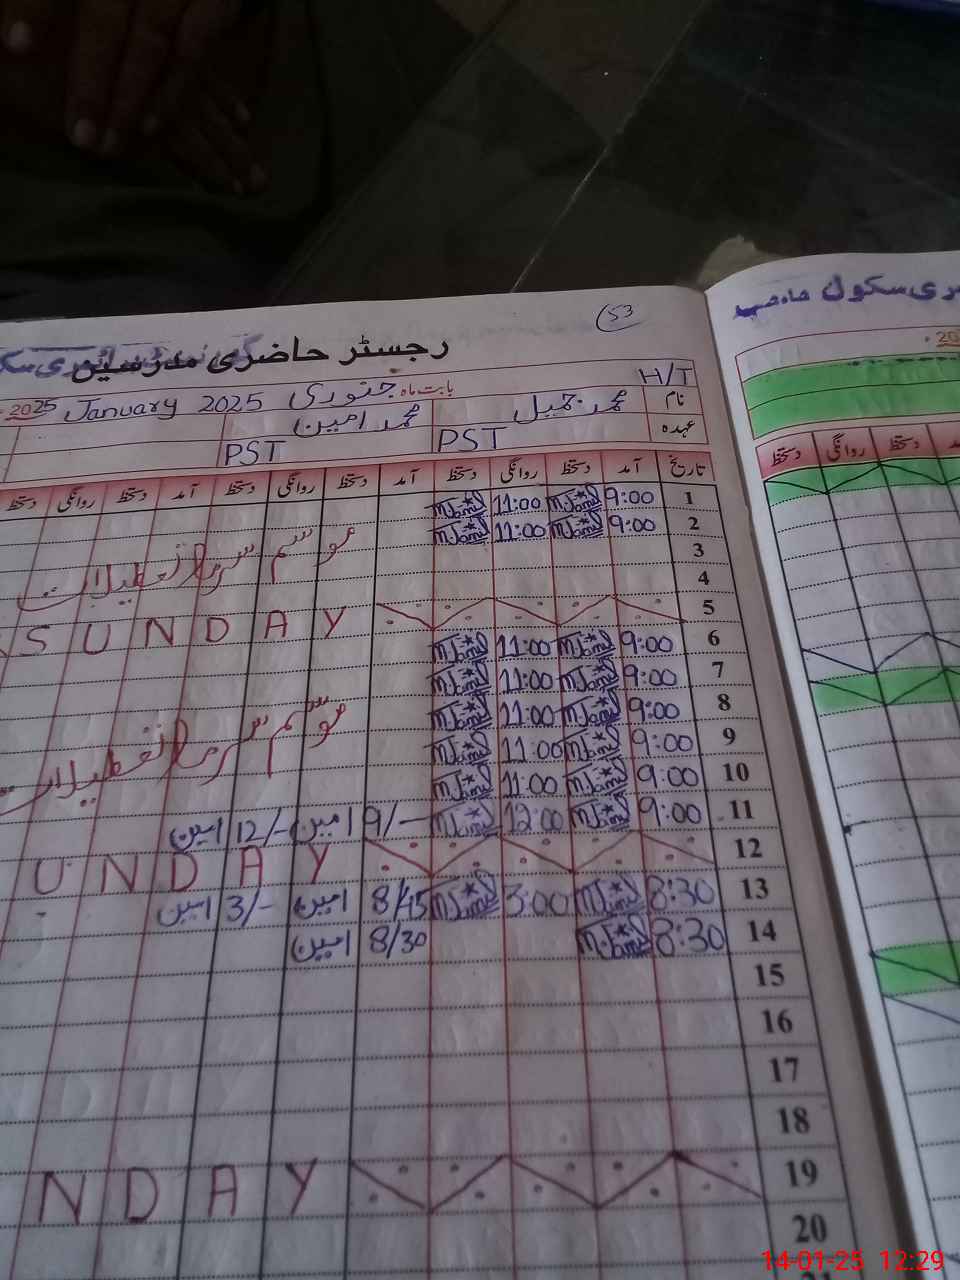 53
رجسٹر حاضری مدرسین
H/T
2025 January 2025 جنوری بابت ماہ
نام محمد جمیل محمد امین
عہدہ PST PST
تاریخ آمد دستخط روانگی دستخط آمد دستخط روانگی دستخط آمد دستخط روانگی دستخط
1 9:00 M.Jamil 11:00 M.Jamil
2 9:00 M.Jamil 11:00 M.Jamil
3 موسم سرما تعطیلات
4
5 SUNDAY
6 9:00 M.Jamil 11:00 M.Jamil
7 9:00 M.Jamil 11:00 M.Jamil
8 9:00 M.Jamil 11:00 M.Jamil موسم سرما تعطیلات
9 9:00 M.Jamil 11:00 M.Jamil
10 9:00 M.Jamil 11:00 M.Jamil
11 9:00 M.Jamil 12:00 M.Jamil 9/- امین 12/- امین
12 UNDAY
13 8:30 M.Jamil 3:00 M.Jamil 8/45 امین 3/- امین
14 8:30 M.Jamil 8/30 امین
15
16
17
18
19 NDAY
20
ری سکول
20
دستخط روانگی دستخط
14-01-25 12:29